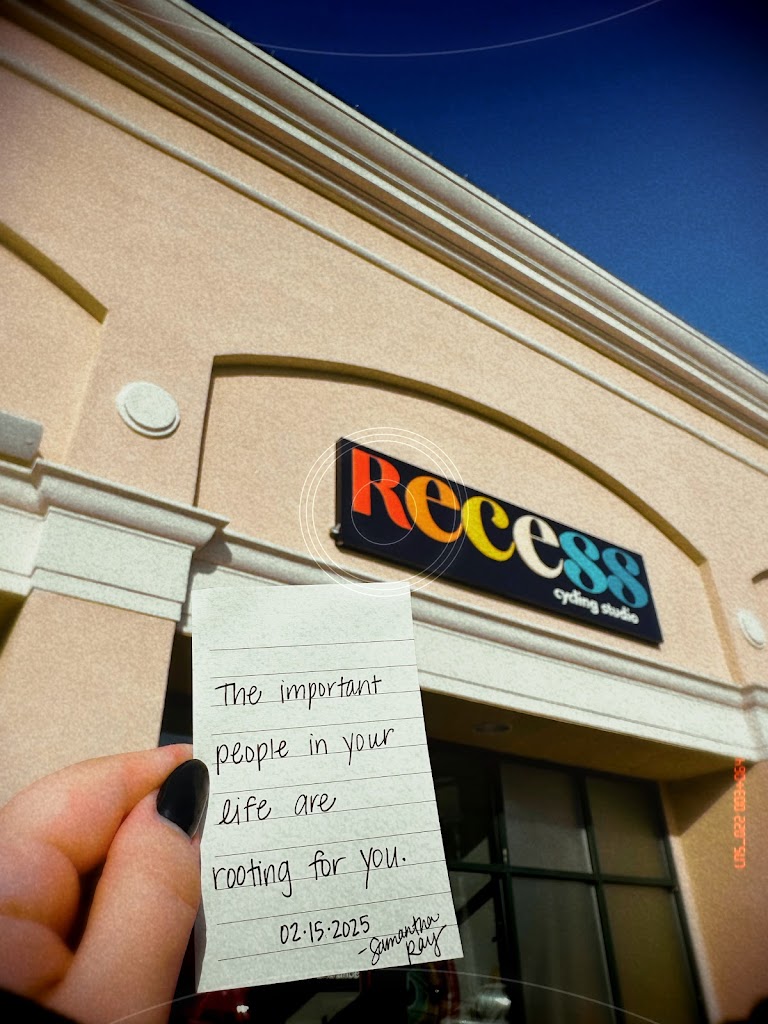 Recess
cycling studio
The important
people in your
life are
rooting for you.
02.15.2025
-Samantha
Ray